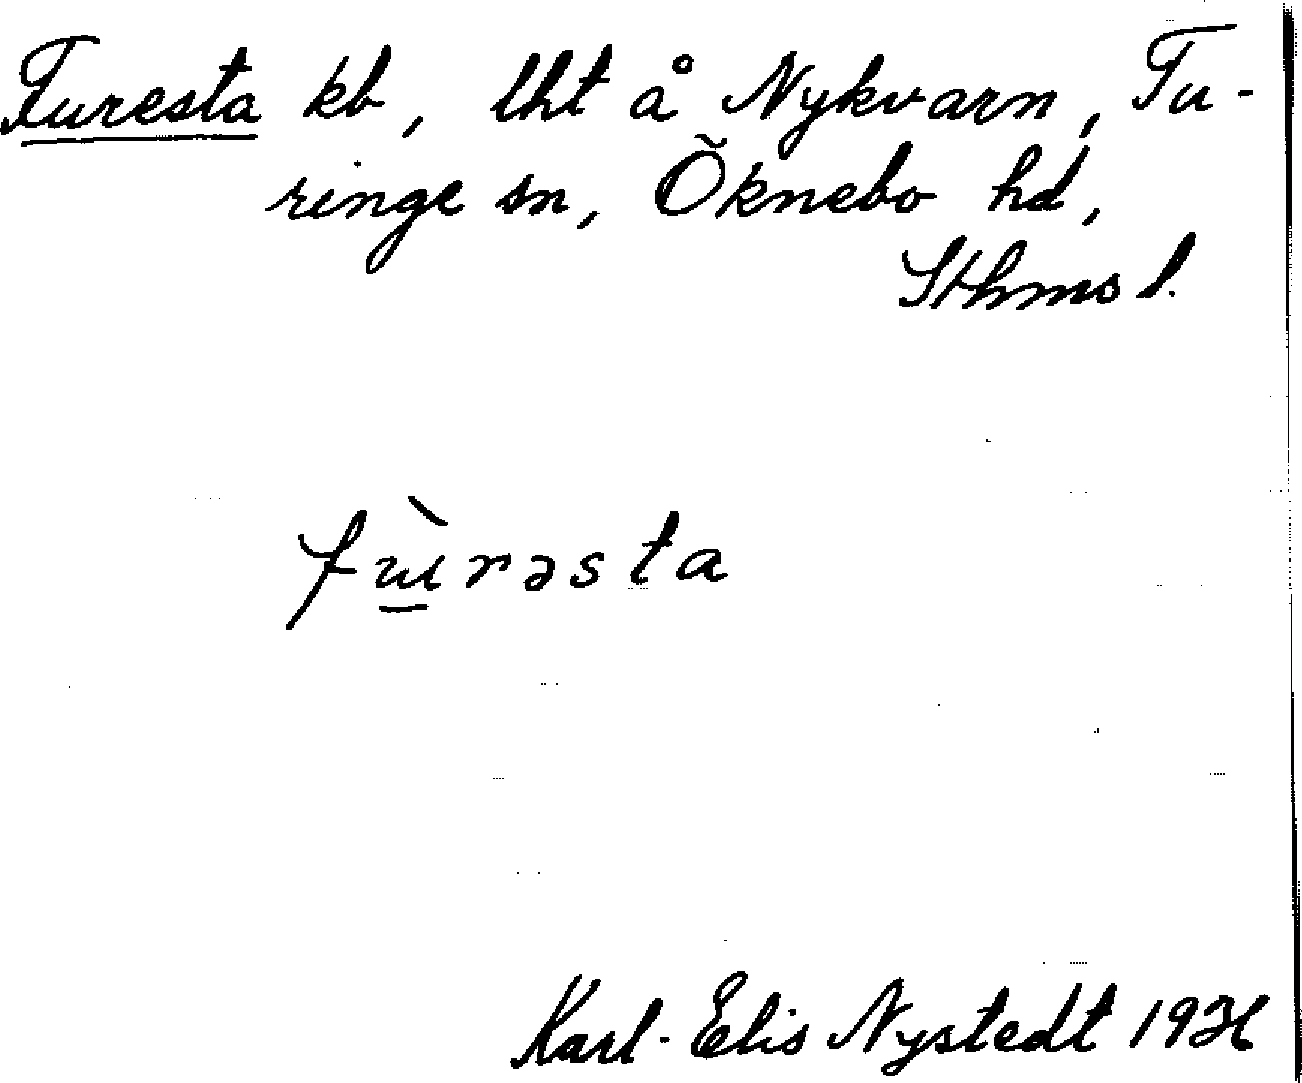 Furesta kb, lht å Nykvarn, Tu-
ringe sn, Öknebo hd,
Sthms l.
fɯ̀rəsta
Karl-Elis Nystedt 1936